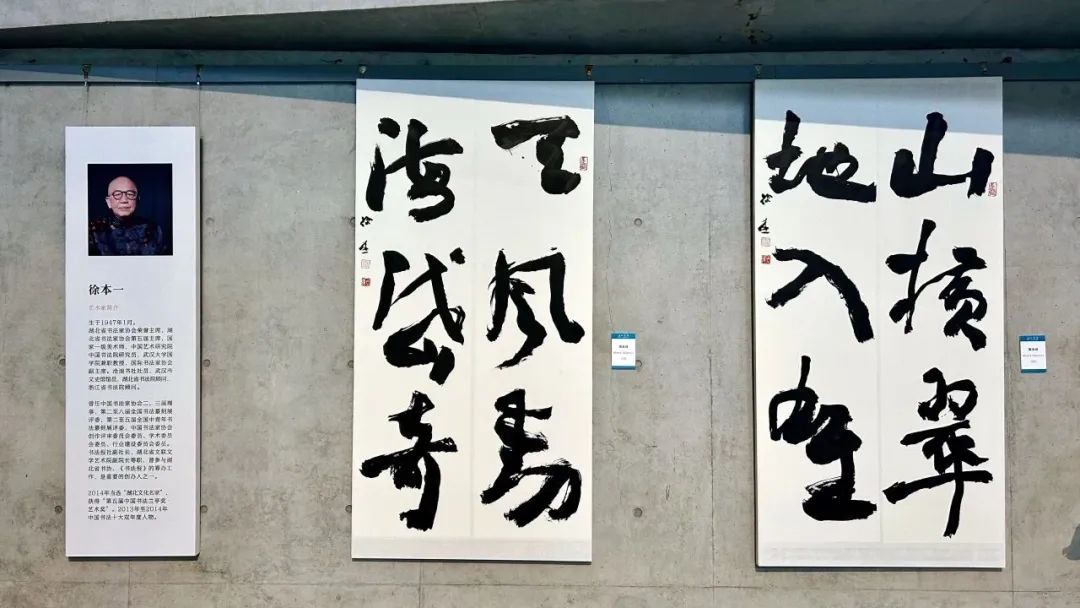 徐本一
艺术家简介
生于1947年1月。
湖北省书法家协会荣誉主席、湖
北省书法家协会第五届主席、国
家一级美术师、中国艺术研究院
中国书法院研究员、武汉大学国
学院兼职教授、国际书法家协会
副主席、沧浪书社社员、武汉市
文史馆馆员、湖北省书法院顾问、
浙江省书法院顾问。
曾任中国书法家协会二、三届理
事、第二至八届全国书法篆刻展
评委、第二至五届全国中青年书
法篆刻展评委、中国书法家协会
创作评审委员会委员、学术委员
会委员、行业建设委员会委员。
书法报社副社长、湖北省文联文
学艺术院副院长等职，曾参与湖
北省书协、《书法报》的筹办工
作，是重要的创办人之一。
2014年当选“湖北文化名家”，
获得“第五届中国书法兰亭奖·
艺术奖”。2013年至2014年
中国书法十大双年度人物。
天风动
海岱奇
山横翠
地入